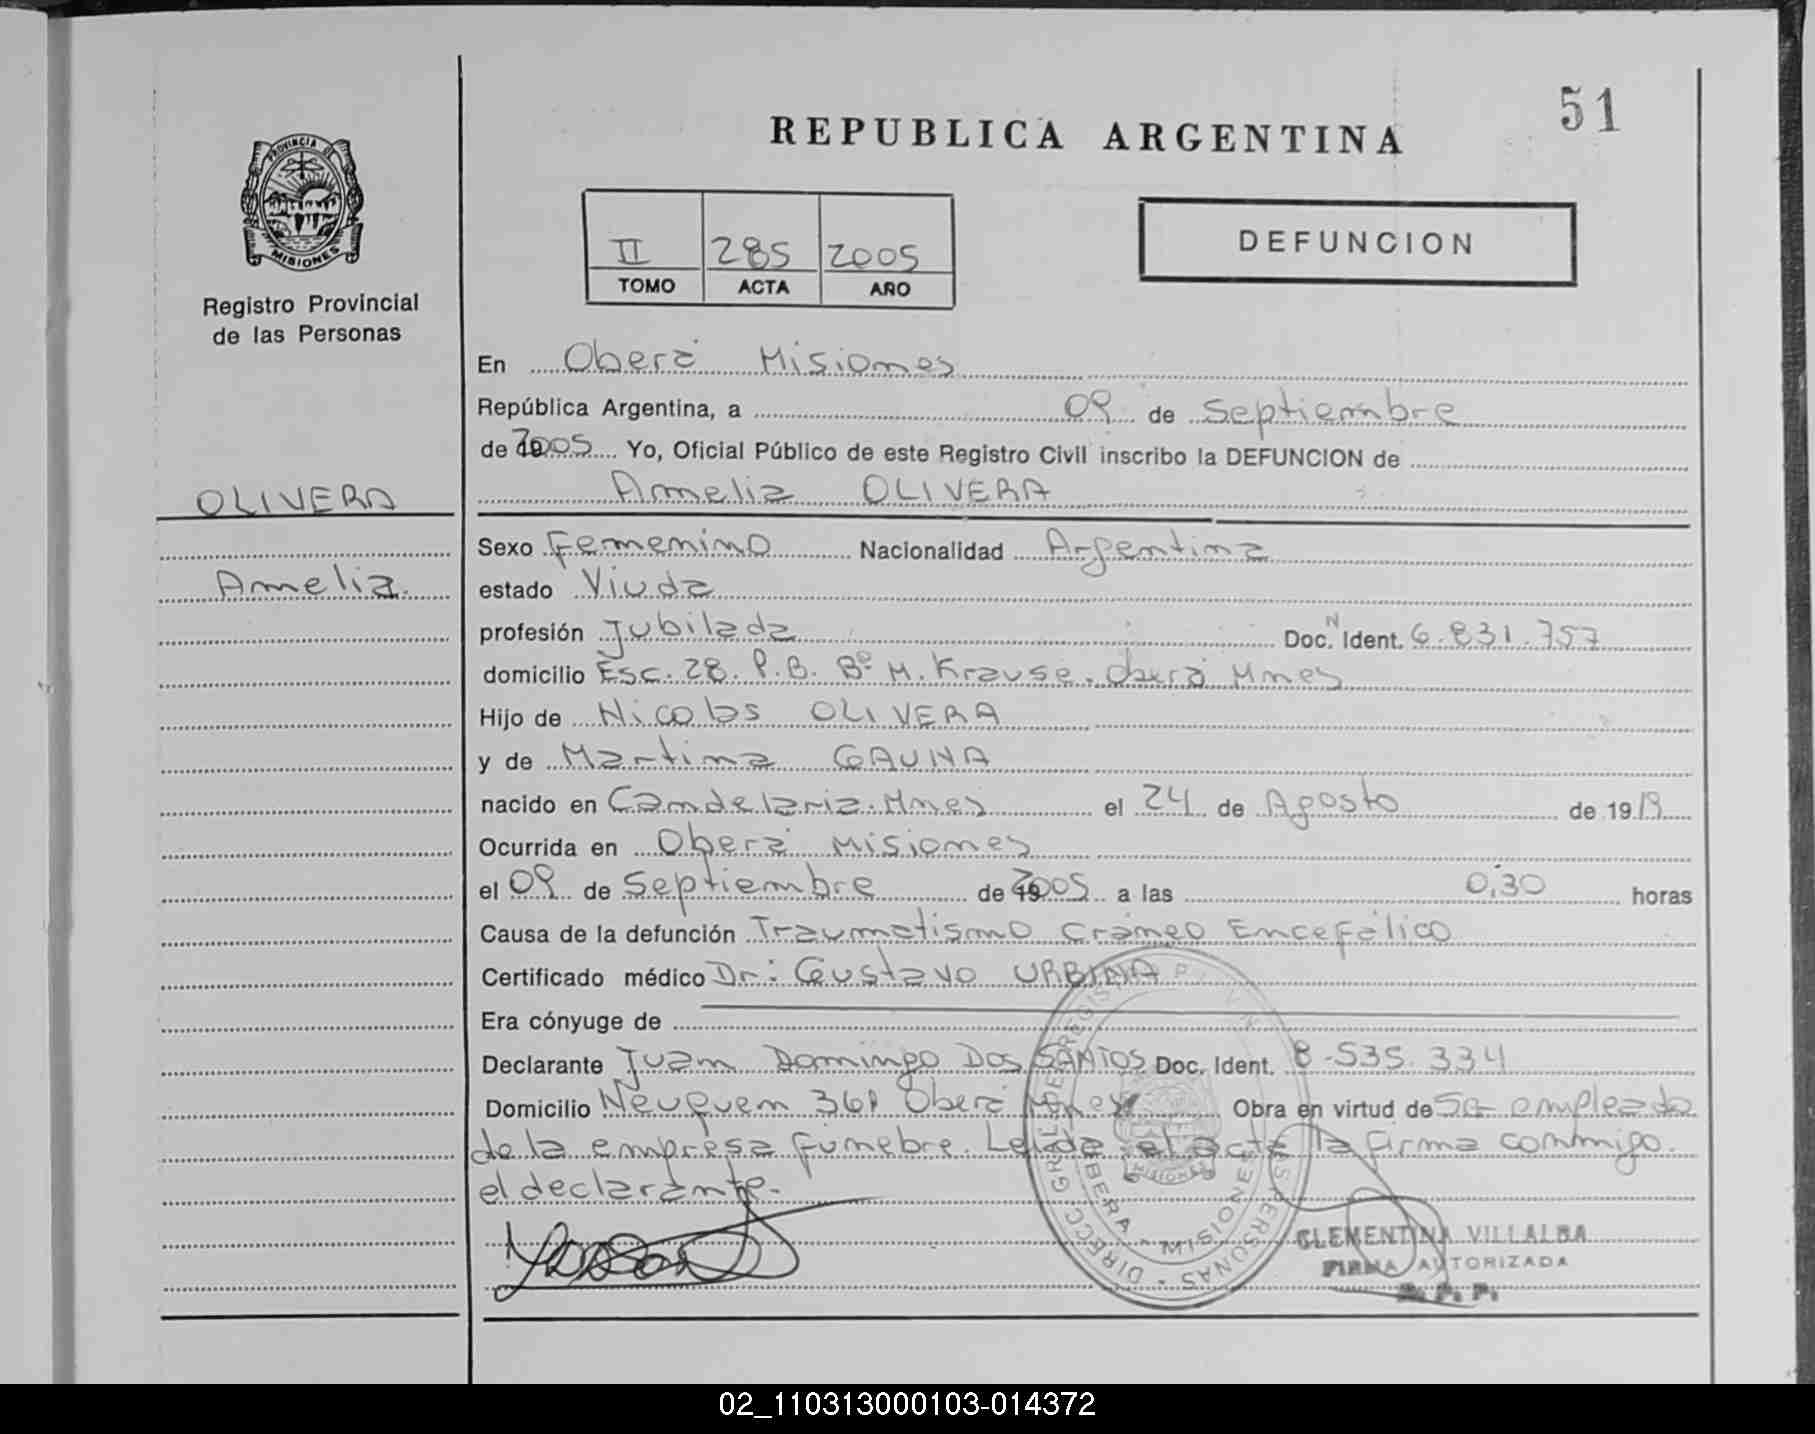 51
REPUBLICA ARGENTINA
PROVINCIA DE
MISIONES
Registro Provincial
de las Personas
II 285 2005
TOMO ACTA AÑO
DEFUNCION
En Oberá Misiones
República Argentina, a 09 de Septiembre
de 2005 Yo, Oficial Público de este Registro Civil inscribo la DEFUNCION de
OLIVERA
Amelia OLIVERA
Amelia
Sexo Femenino Nacionalidad Argentina
estado Viuda
profesión Jubilada Doc. N Ident. 6.831.757
domicilio Esc. 28. P.B. Bº M. Krause. Oberá Mnes
Hijo de Nicolas OLIVERA
y de Martina GAUNA
nacido en Candelaria. Mnes el 24 de Agosto de 1919
Ocurrida en Oberá Misiones
el 09 de Septiembre de 2005 a las 0,30 horas
Causa de la defunción Traumatismo Cráneo Encefálico
Certificado médico Dr: Gustavo URBINA
Era cónyuge de
Declarante Juan Domingo DOS SANTOS Doc. Ident. 8.535.334
Domicilio Neuquen 361 Oberá Mnes Obra en virtud de Se empleado
de la empresa fúnebre. Leída el acta la firma conmigo.
el declarante.
OBERA - MISIONES
CLEMENTINA VILLALBA
FIRMA AUTORIZADA
R. P. P.
02_110313000103-014372